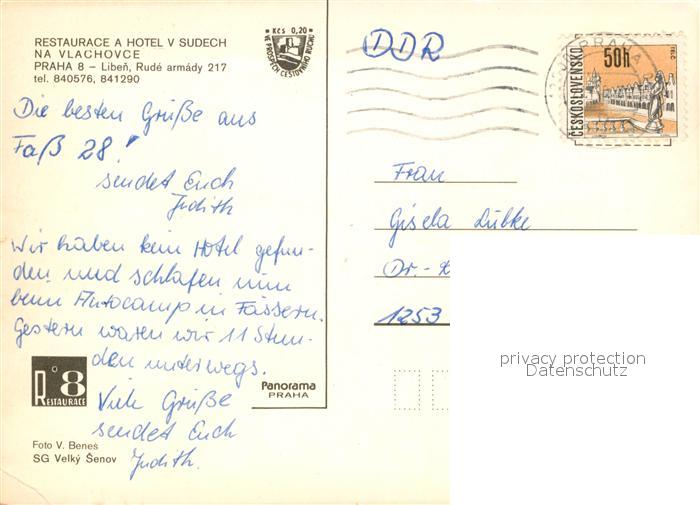 RESTAURACE A HOTEL V SUDECH
NA VLACHOVCE
PRAHA 8 – Libeň, Rudé armády 217
tel. 840576, 841290
Kčs 0,20
VE PROSPĚCH CESTOVNÍHO RUCHU
Die besten Grüße aus
Faß 28!
sendet Euch
Judith
Wir haben kein Hotel gefun-
den und schlafen nun
beim Autocamp in Fässern.
Gestern waren wir 11 Stun-
den unterwegs.
Viele Grüße
sendet Euch
Judith.
R 8
RESTAURACE
Foto V. Beneš
SG Velký Šenov
Panorama
PRAHA
DDR
PRAHA
ČESKOSLOVENSKO
50h
TELČ
Frau
Gisela Lübke
Dr.-
1253
privacy protection
Datenschutz